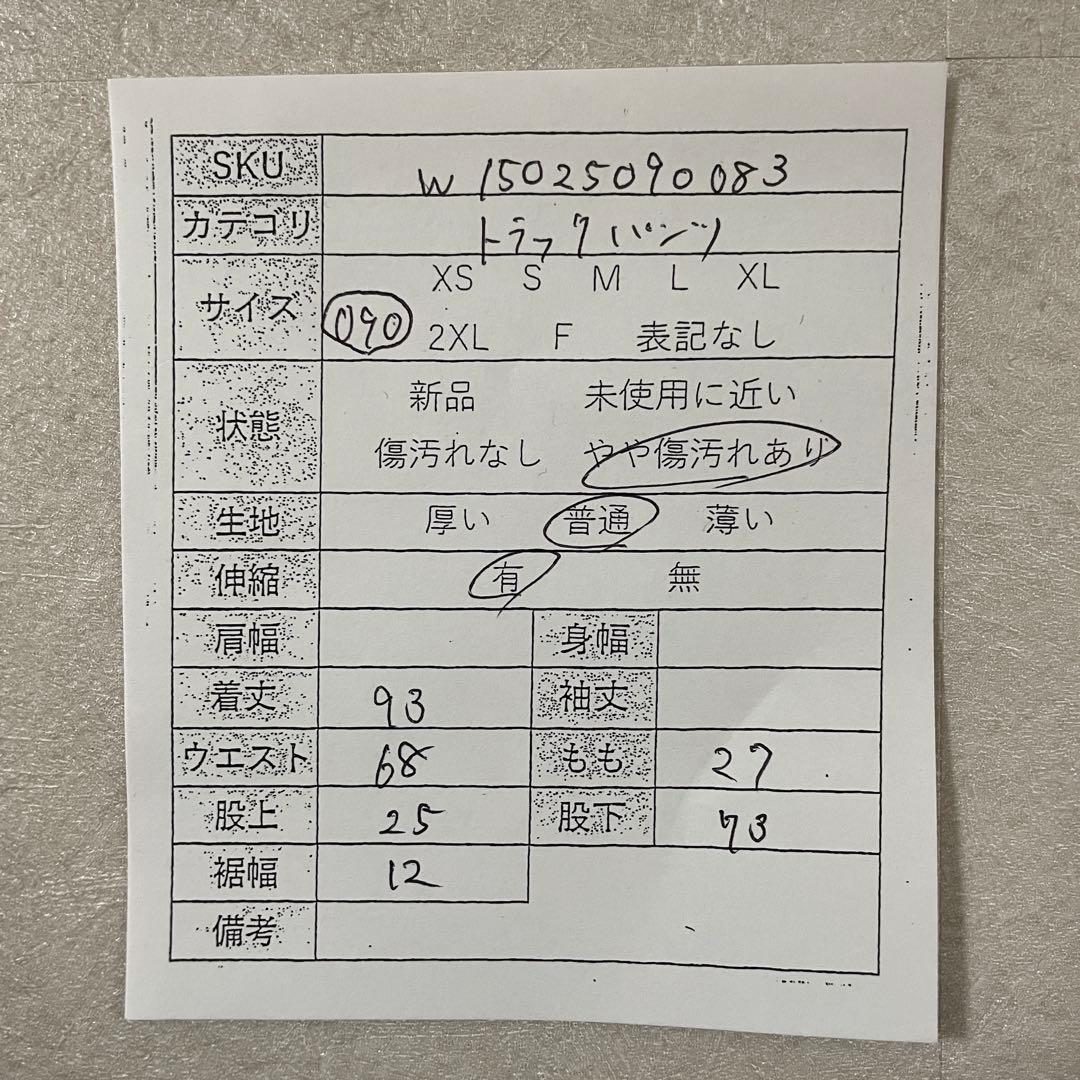 SKU W15025090083
カテゴリ トラックパンツ
サイズ 090 XS S M L XL
2XL F 表記なし
状態 新品 未使用に近い
傷汚れなし やや傷汚れあり
生地 厚い 普通 薄い
伸縮 有 無
肩幅 身幅
着丈 93 袖丈
ウエスト 68 もも 27
股上 25 股下 73
裾幅 12
備考